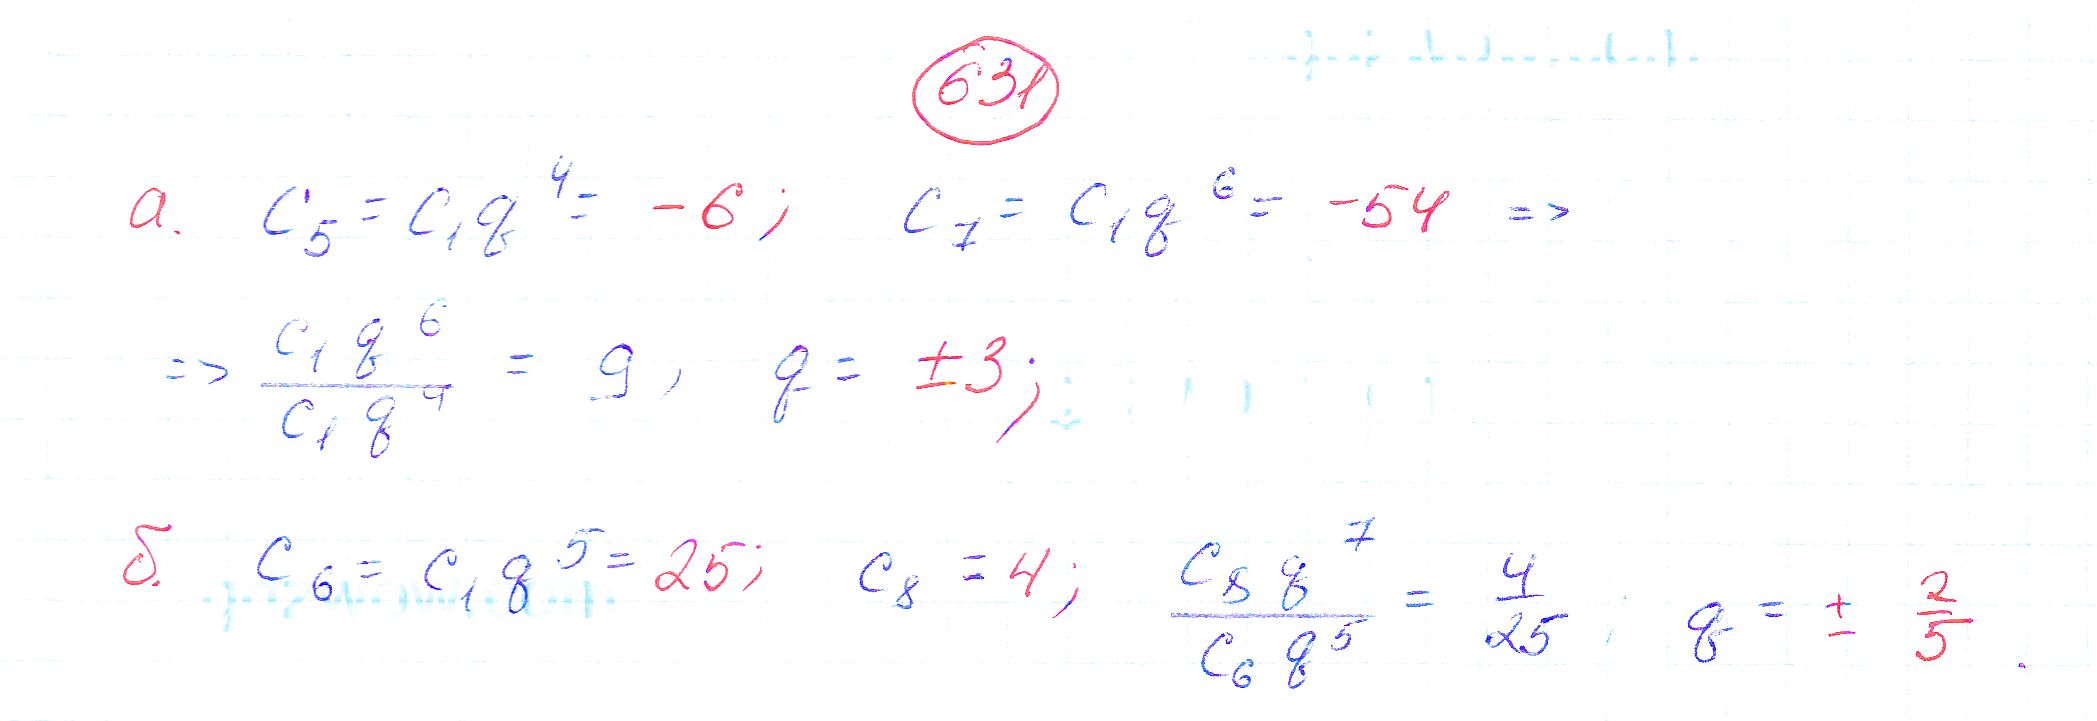 631
а. C₅ = C₁q⁴ = -6; C₇ = C₁q⁶ = -54 =>
=> C₁q⁶/C₁q⁴ = 9, q = ±3;
б. C₆ = C₁q⁵ = 25; C₈ = 4; C₈q⁷/C₆q⁵ = 4/25; q = ± 2/5.